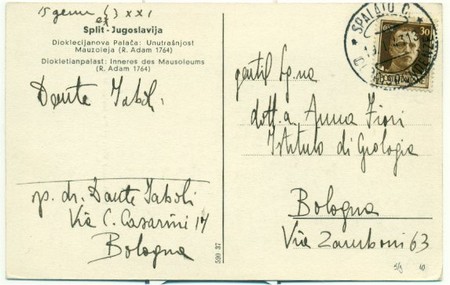 15 genn 43 XXI
ex
Split - Jugoslavija
Dioklecijanova Palača: Unutrašnjost
Mauzoleja (R. Adam 1764)
Diokletianpalast: Inneres des Mausoleums
(R. Adam 1764)
Dante
sp. dr. Dante
Via C. Casarini 17
Bologna
SPALATO C.
30
gentil Sg.na
dott.a Anna Fiori
Istituto di Geologia
Bologna
Via Zamboni 63
590 37
10